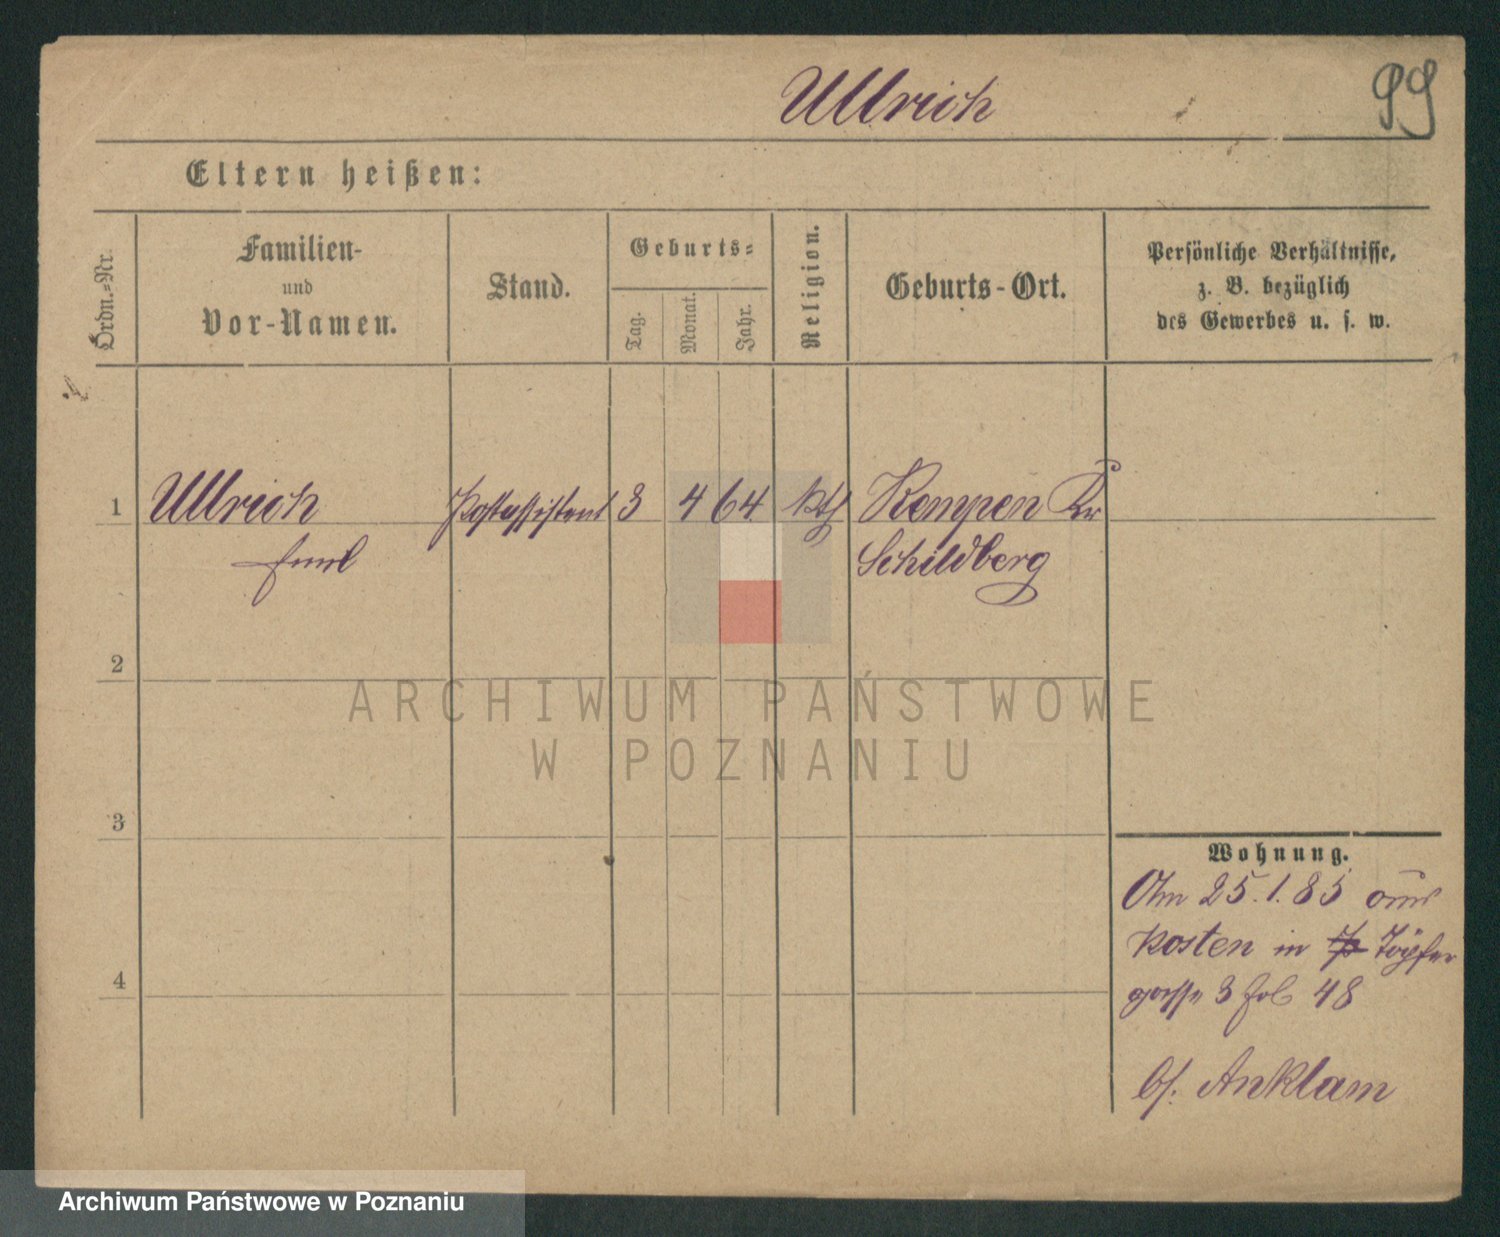 Ullrich
99
Eltern heißen:
Ordn.-Nr.
Familien-
und
Vor-Namen.
Stand.
Geburts-
Tag.
Monat.
Jahr.
Religion.
Geburts-Ort.
Persönliche Verhältnisse,
z. B. bezüglich
des Gewerbes u. s. w.
1 Ullrich Postassistent 3 4 64 kth Kempen Kr
Emil Schildberg
2
ARCHIWUM PAŃSTWOWE
W POZNANIU
3
Wohnung.
Am 25.1.85 aus
Kosten in Töpfer
gasse 3 bei 48
4
bf. Anklam
Archiwum Państwowe w Poznaniu